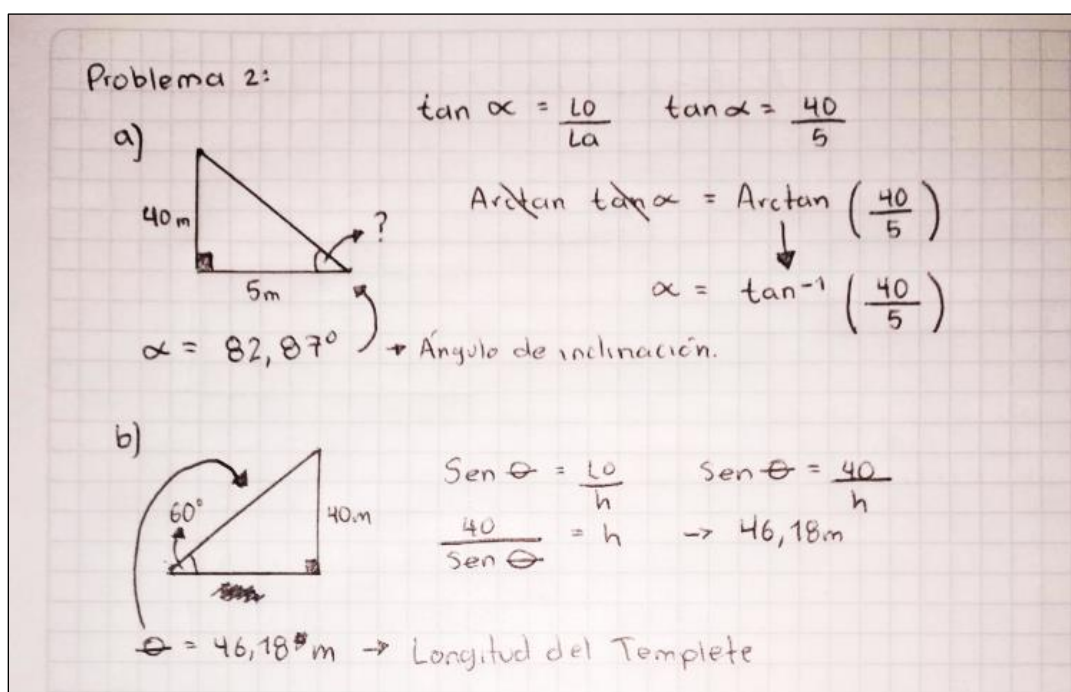 Problema 2:
tan α = Lo/La    tan α = 40/5
a)
Arctan tan α = Arctan (40/5)
40 m
?
5m
α = tan⁻¹ (40/5)
α = 82,87° → Ángulo de inclinación.
b)
Sen θ = Lo/h    Sen θ = 40/h
60°
40m
40/Sen θ = h → 46,18m
θ = 46,18 m → Longitud del Templete